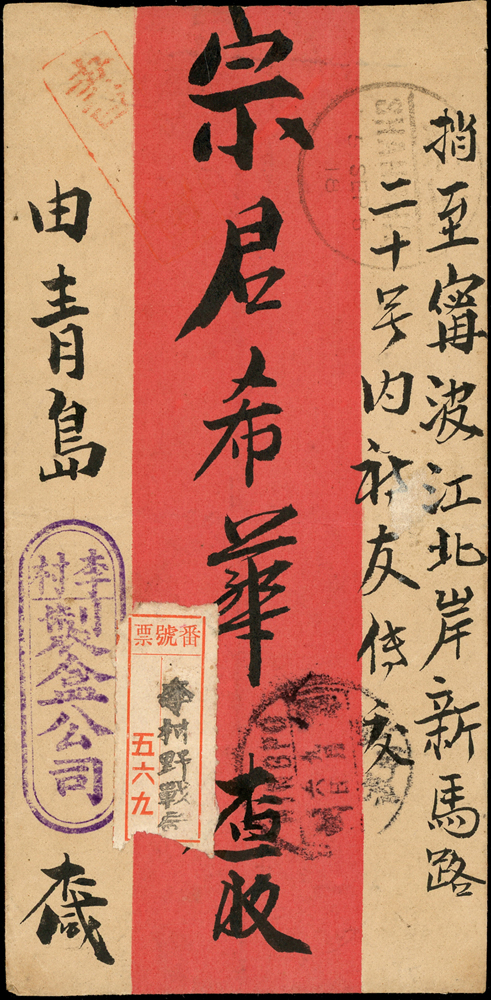 捎至甯波江北岸新馬路
二十号内
友
宗君希華 查收
由青島
李村
製盒公司
緘
番號票
李村野戰局
五六九
NINGPO